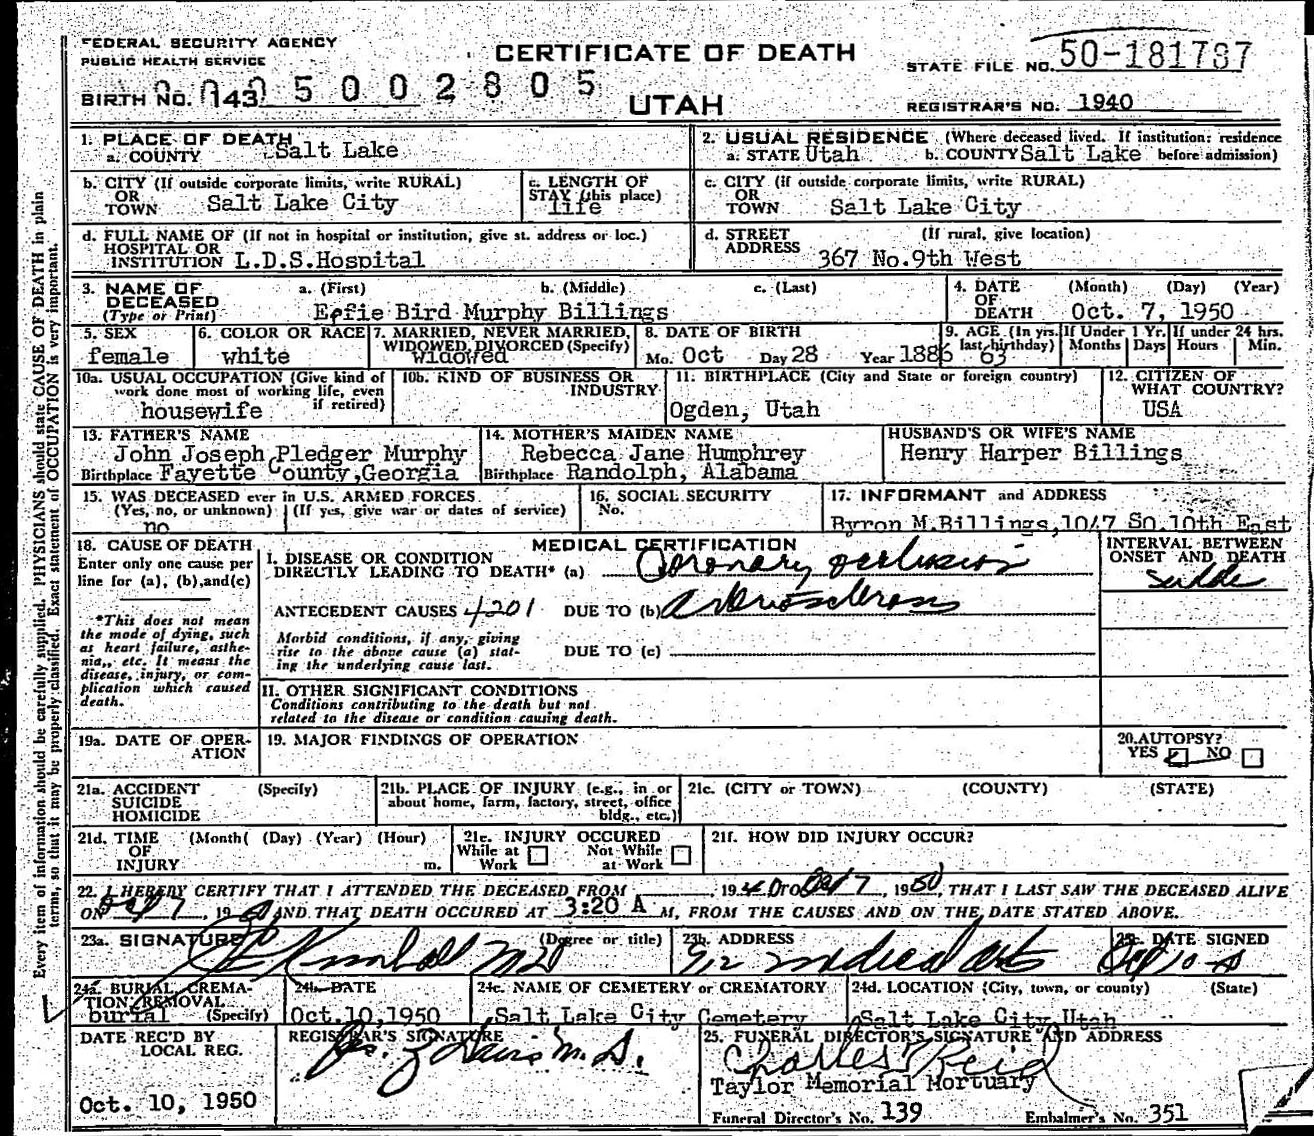 FEDERAL SECURITY AGENCY
PUBLIC HEALTH SERVICE
BIRTH NO. 143
005002805
CERTIFICATE OF DEATH
UTAH
STATE FILE NO. 50-181787
REGISTRAR'S NO. 1940
Every item of information should be carefully supplied. PHYSICIANS should state CAUSE OF DEATH in plain
terms, so that it may be properly classified. Exact statement of OCCUPATION is very important.
1. PLACE OF DEATH
a. COUNTY Salt Lake
2. USUAL RESIDENCE (Where deceased lived. If institution: residence
a. STATE Utah b. COUNTY Salt Lake before admission)
b. CITY (If outside corporate limits, write RURAL)
OR
TOWN Salt Lake City
c. LENGTH OF
STAY (this place)
life
c. CITY (if outside corporate limits, write RURAL)
OR
TOWN Salt Lake City
d. FULL NAME OF (If not in hospital or institution, give st. address or loc.)
HOSPITAL OR
INSTITUTION L.D.S.Hospital
d. STREET (If rural, give location)
ADDRESS 367 No.9th West
3. NAME OF a. (First) b. (Middle) c. (Last)
DECEASED
(Type or Print) Effie Bird Murphy Billings
4. DATE (Month) (Day) (Year)
OF
DEATH Oct. 7, 1950
5. SEX
female
6. COLOR OR RACE
white
7. MARRIED, NEVER MARRIED,
WIDOWED, DIVORCED (Specify)
widowed
8. DATE OF BIRTH
Mo. Oct Day 28 Year 1886
9. AGE (In yrs.
last birthday)
63
If Under 1 Yr.
Months Days
If under 24 hrs.
Hours Min.
10a. USUAL OCCUPATION (Give kind of
work done most of working life, even
if retired)
housewife
10b. KIND OF BUSINESS OR
INDUSTRY
11. BIRTHPLACE (City and State or foreign country)
Ogden, Utah
12. CITIZEN OF
WHAT COUNTRY?
USA
13. FATHER'S NAME
John Joseph Pledger Murphy
Birthplace Fayette County,Georgia
14. MOTHER'S MAIDEN NAME
Rebecca Jane Humphrey
Birthplace Randolph, Alabama
HUSBAND'S OR WIFE'S NAME
Henry Harper Billings
15. WAS DECEASED ever in U.S. ARMED FORCES.
(Yes, no, or unknown) (If yes, give war or dates of service)
no
16. SOCIAL SECURITY
No.
17. INFORMANT and ADDRESS
Byron M.Billings,1047 So.10th East
18. CAUSE OF DEATH
Enter only one cause per
line for (a), (b),and(c)
*This does not mean
the mode of dying, such
as heart failure, asthe-
nia,, etc. It means the
disease, injury, or com-
plication which caused
death.
MEDICAL CERTIFICATION
I. DISEASE OR CONDITION
DIRECTLY LEADING TO DEATH* (a) Coronary occlusion
ANTECEDENT CAUSES 4201 DUE TO (b) Arteriosclerosis
Morbid conditions, if any, giving
rise to the above cause (a) stat-
ing the underlying cause last.
DUE TO (c)
INTERVAL BETWEEN
ONSET AND DEATH
II. OTHER SIGNIFICANT CONDITIONS
Conditions contributing to the death but not
related to the disease or condition causing death.
19a. DATE OF OPER-
ATION
19. MAJOR FINDINGS OF OPERATION
20. AUTOPSY?
YES NO
21a. ACCIDENT (Specify)
SUICIDE
HOMICIDE
21b. PLACE OF INJURY (e.g., in or
about home, farm, factory, street, office
bldg., etc.)
21c. (CITY or TOWN) (COUNTY) (STATE)
21d. TIME (Month( (Day) (Year) (Hour)
OF
INJURY m.
21e. INJURY OCCURED
While at Not While
Work at Work
21f. HOW DID INJURY OCCUR?
22. I HEREBY CERTIFY THAT I ATTENDED THE DECEASED FROM 19 TO Oct 7, 1950, THAT I LAST SAW THE DECEASED ALIVE
ON Oct 7, 1950 AND THAT DEATH OCCURED AT 3:20 A M, FROM THE CAUSES AND ON THE DATE STATED ABOVE.
23a. SIGNATURE (Degree or title)
Kimball MD
23b. ADDRESS
912 Medical Arts
23c. DATE SIGNED
Oct 10
24a. BURIAL, CREMA-
TION, REMOVAL
burial (Specify)
24b. DATE
Oct.10,1950
24c. NAME OF CEMETERY or CREMATORY
Salt Lake City Cemetery
24d. LOCATION (City, town, or county) (State)
Salt Lake City,Utah
DATE REC'D BY
LOCAL REG.
Oct. 10, 1950
REGISTRAR'S SIGNATURE
M.D.
25. FUNERAL DIRECTOR'S SIGNATURE AND ADDRESS
Charles Reid
Taylor Memorial Mortuary
Funeral Director's No. 139 Embalmer's No. 351